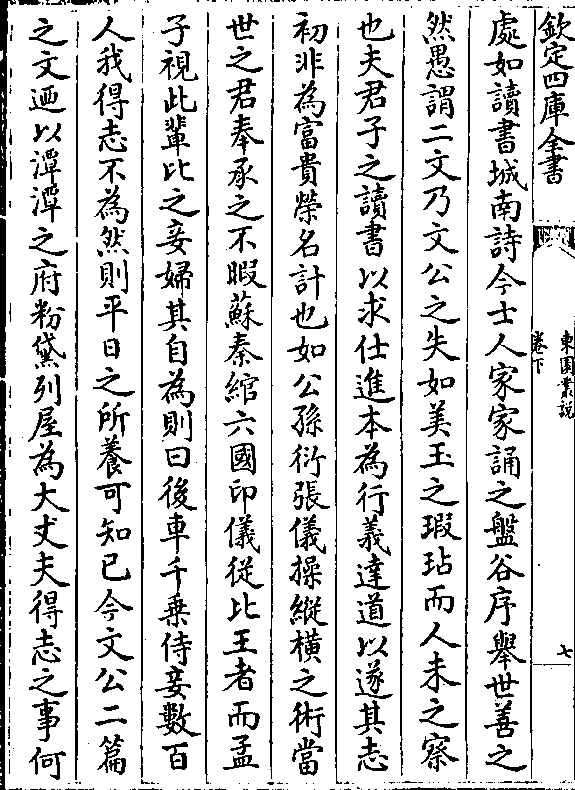 欽定四庫全書
東園叢說
卷下
七
處如讀書城南詩今士人家家誦之盤谷序舉世善之
然愚謂二文乃文公之失如美玉之瑕玷而人未之察
也夫君子之讀書以求仕進本為行義達道以遂其志
初非為富貴榮名計也如公孫衍張儀操縱橫之術當
世之君奉承之不暇蘇秦綰六國印儀從比王者而孟
子視此輩比之妾婦其自為則曰後車千乗侍妾數百
人我得志不為然則平日之所養可知已今文公二篇
之文廼以潭潭之府粉黛列屋為大丈夫得志之事何